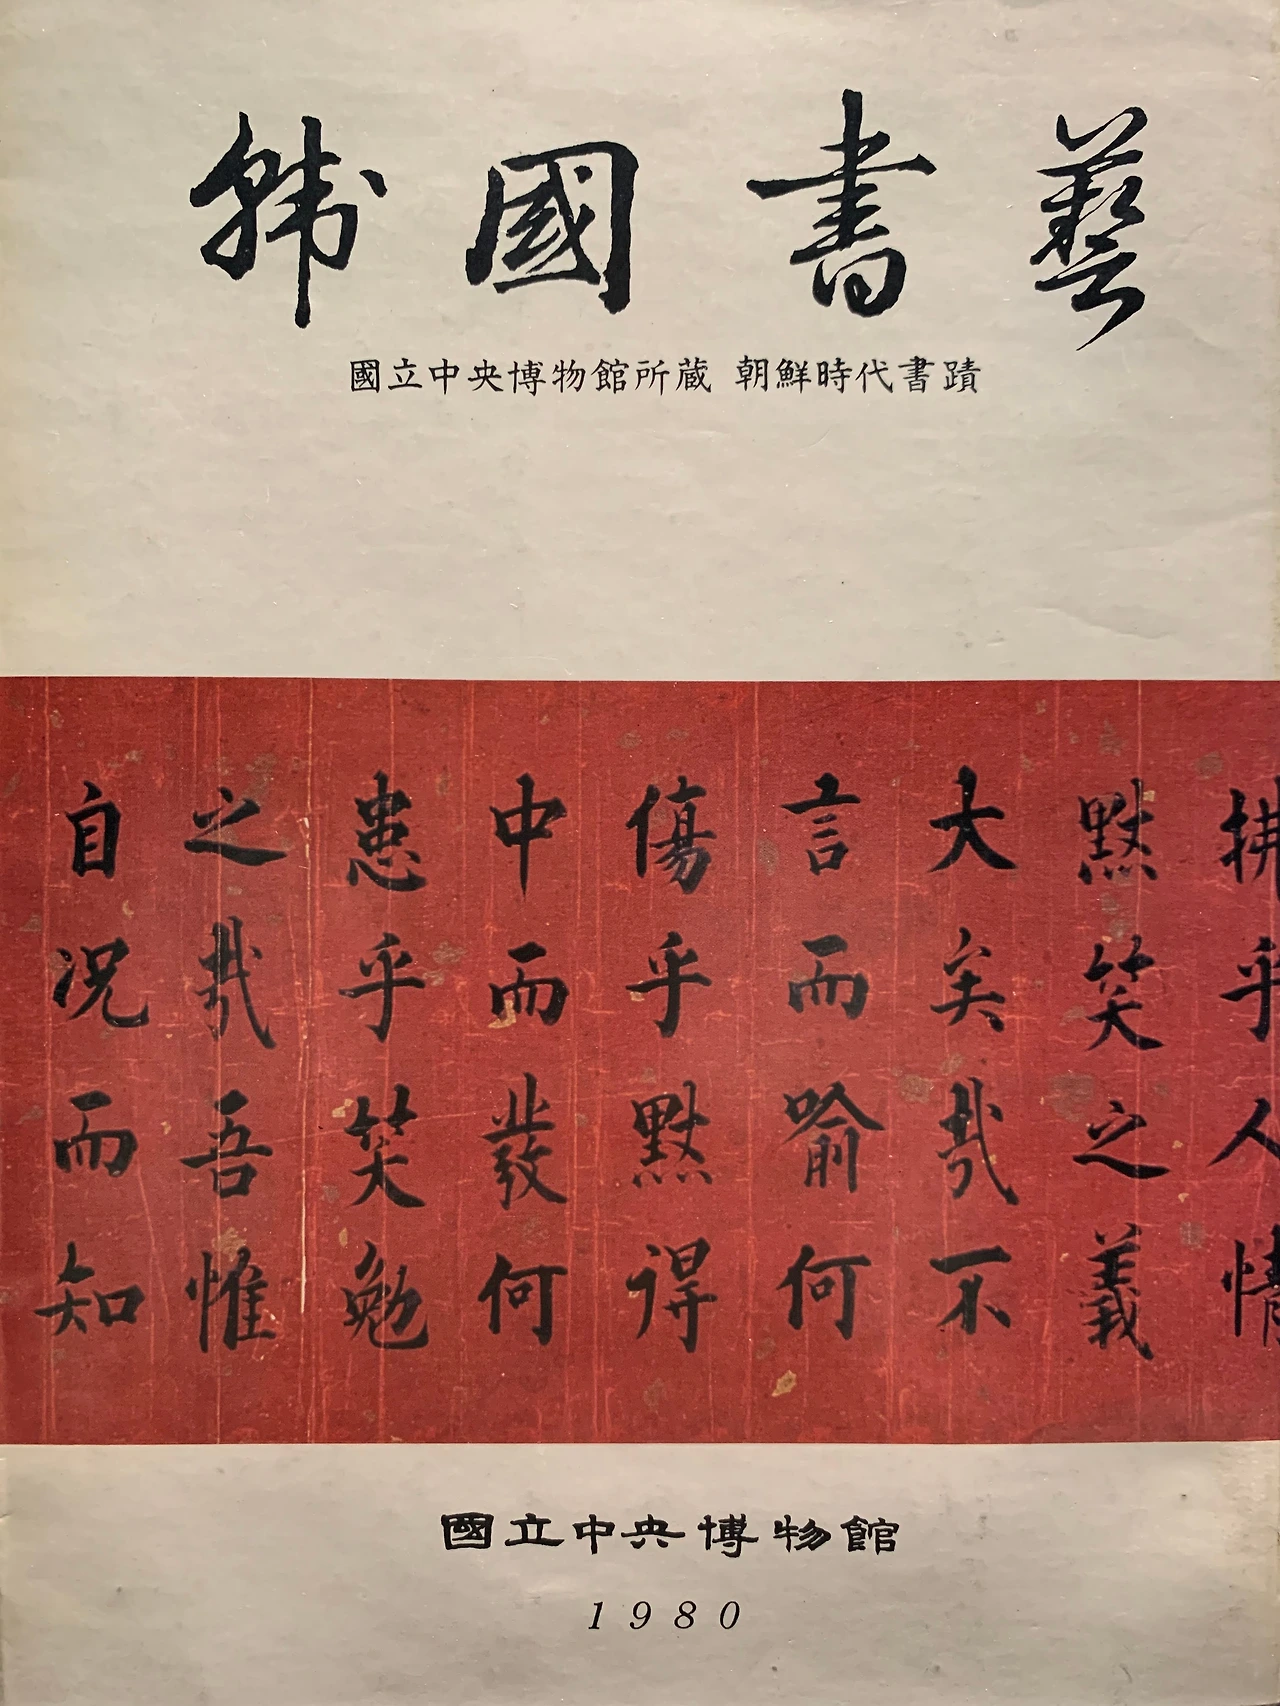 韓國書藝
國立中央博物館所蔵 朝鮮時代書蹟
拂乎人情
黙笑之義
大矣哉不
言而喻何
傷乎黙得
中而發何
患乎笑勉
之哉吾惟
自況而知
國立中央博物館
1980